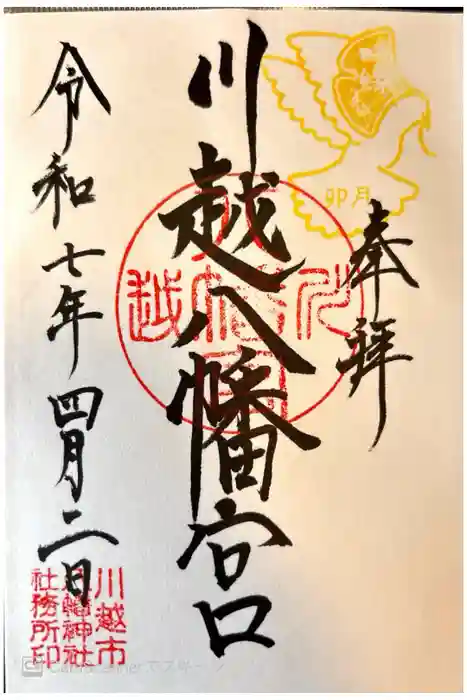 奉拝
卯月
川越八幡宮
令和七年四月二日
川越市
八幡神社
社務所印